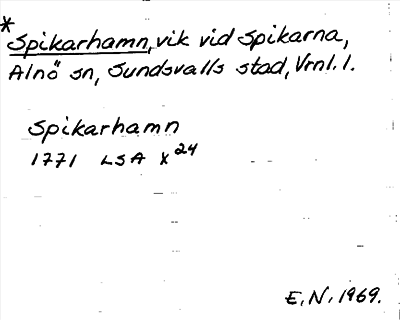 *
Spikarhamn, vik vid Spikarna,
Alnö sn, Sundsvalls stad, Vrnl. l.
Spikarhamn
1771 LSA X 24
E.N. 1969.